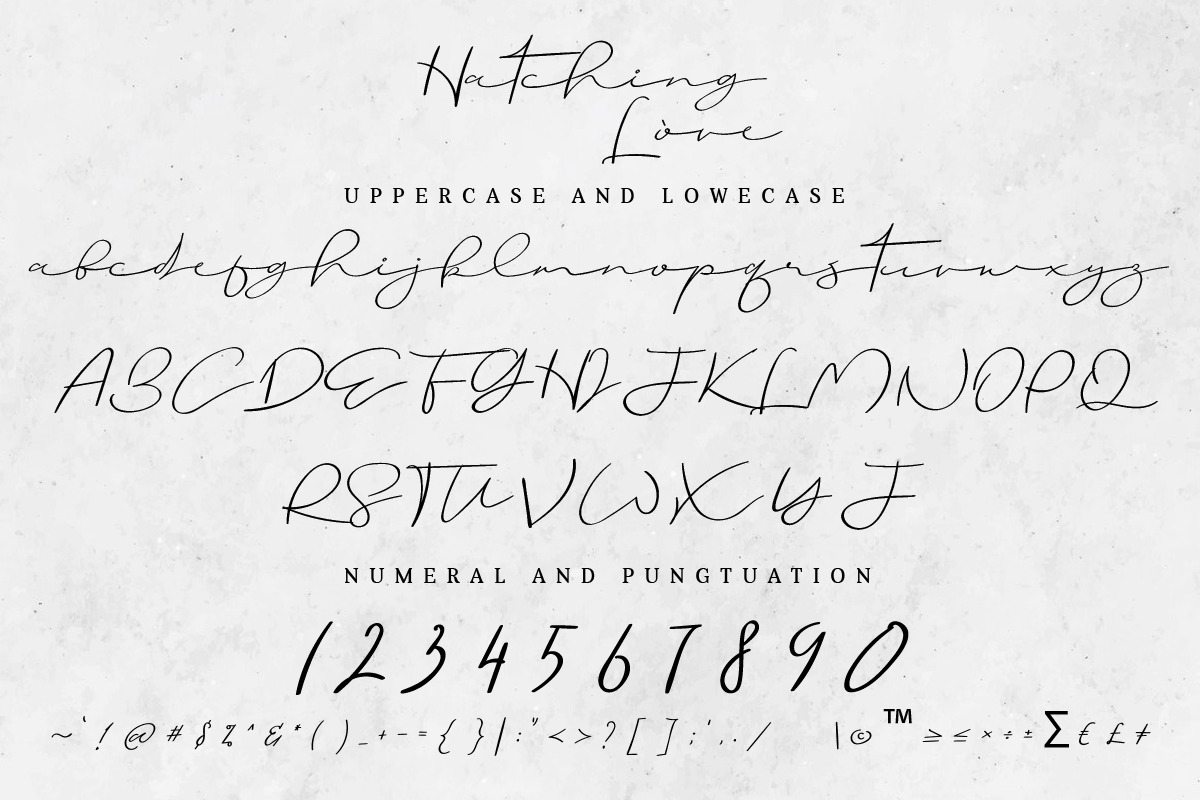 Hatching
Love
UPPERCASE AND LOWECASE
abcdefghijklmnopqrstuvwxyz
ABCDEFGHIJKLMNOPQ
RSTUVWXYZ
NUMERAL AND PUNGTUATION
1 2 3 4 5 6 7 8 9 0
~ ` ! @ # $ % ^ & * ( ) _ + - = { } | : " < > ? [ ] ; ' , . / \ © ™ ≥ ≤ × ÷ ± Σ € £ ≠